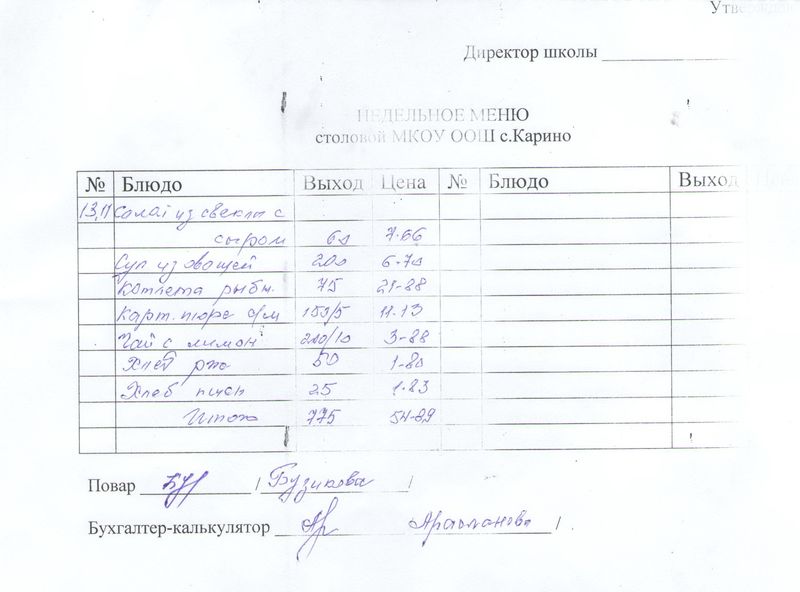 Утвержден
Директор школы
НЕДЕЛЬНОЕ МЕНЮ
столовой МКОУ ООШ с.Карино
№ Блюдо Выход Цена № Блюдо Выход
Салат из свеклы с
сыром 60 7-66
Суп из овощей 200 6-70
Котлета рыбн. 75 21-88
Карт. пюре с/м 150/5 11-13
Чай с лимон 200/10 3-88
Хлеб рж 50 1-80
Хлеб пшен 25 1-83
Итого 775 54-89
Повар / Бузикова /
Бухгалтер-калькулятор /